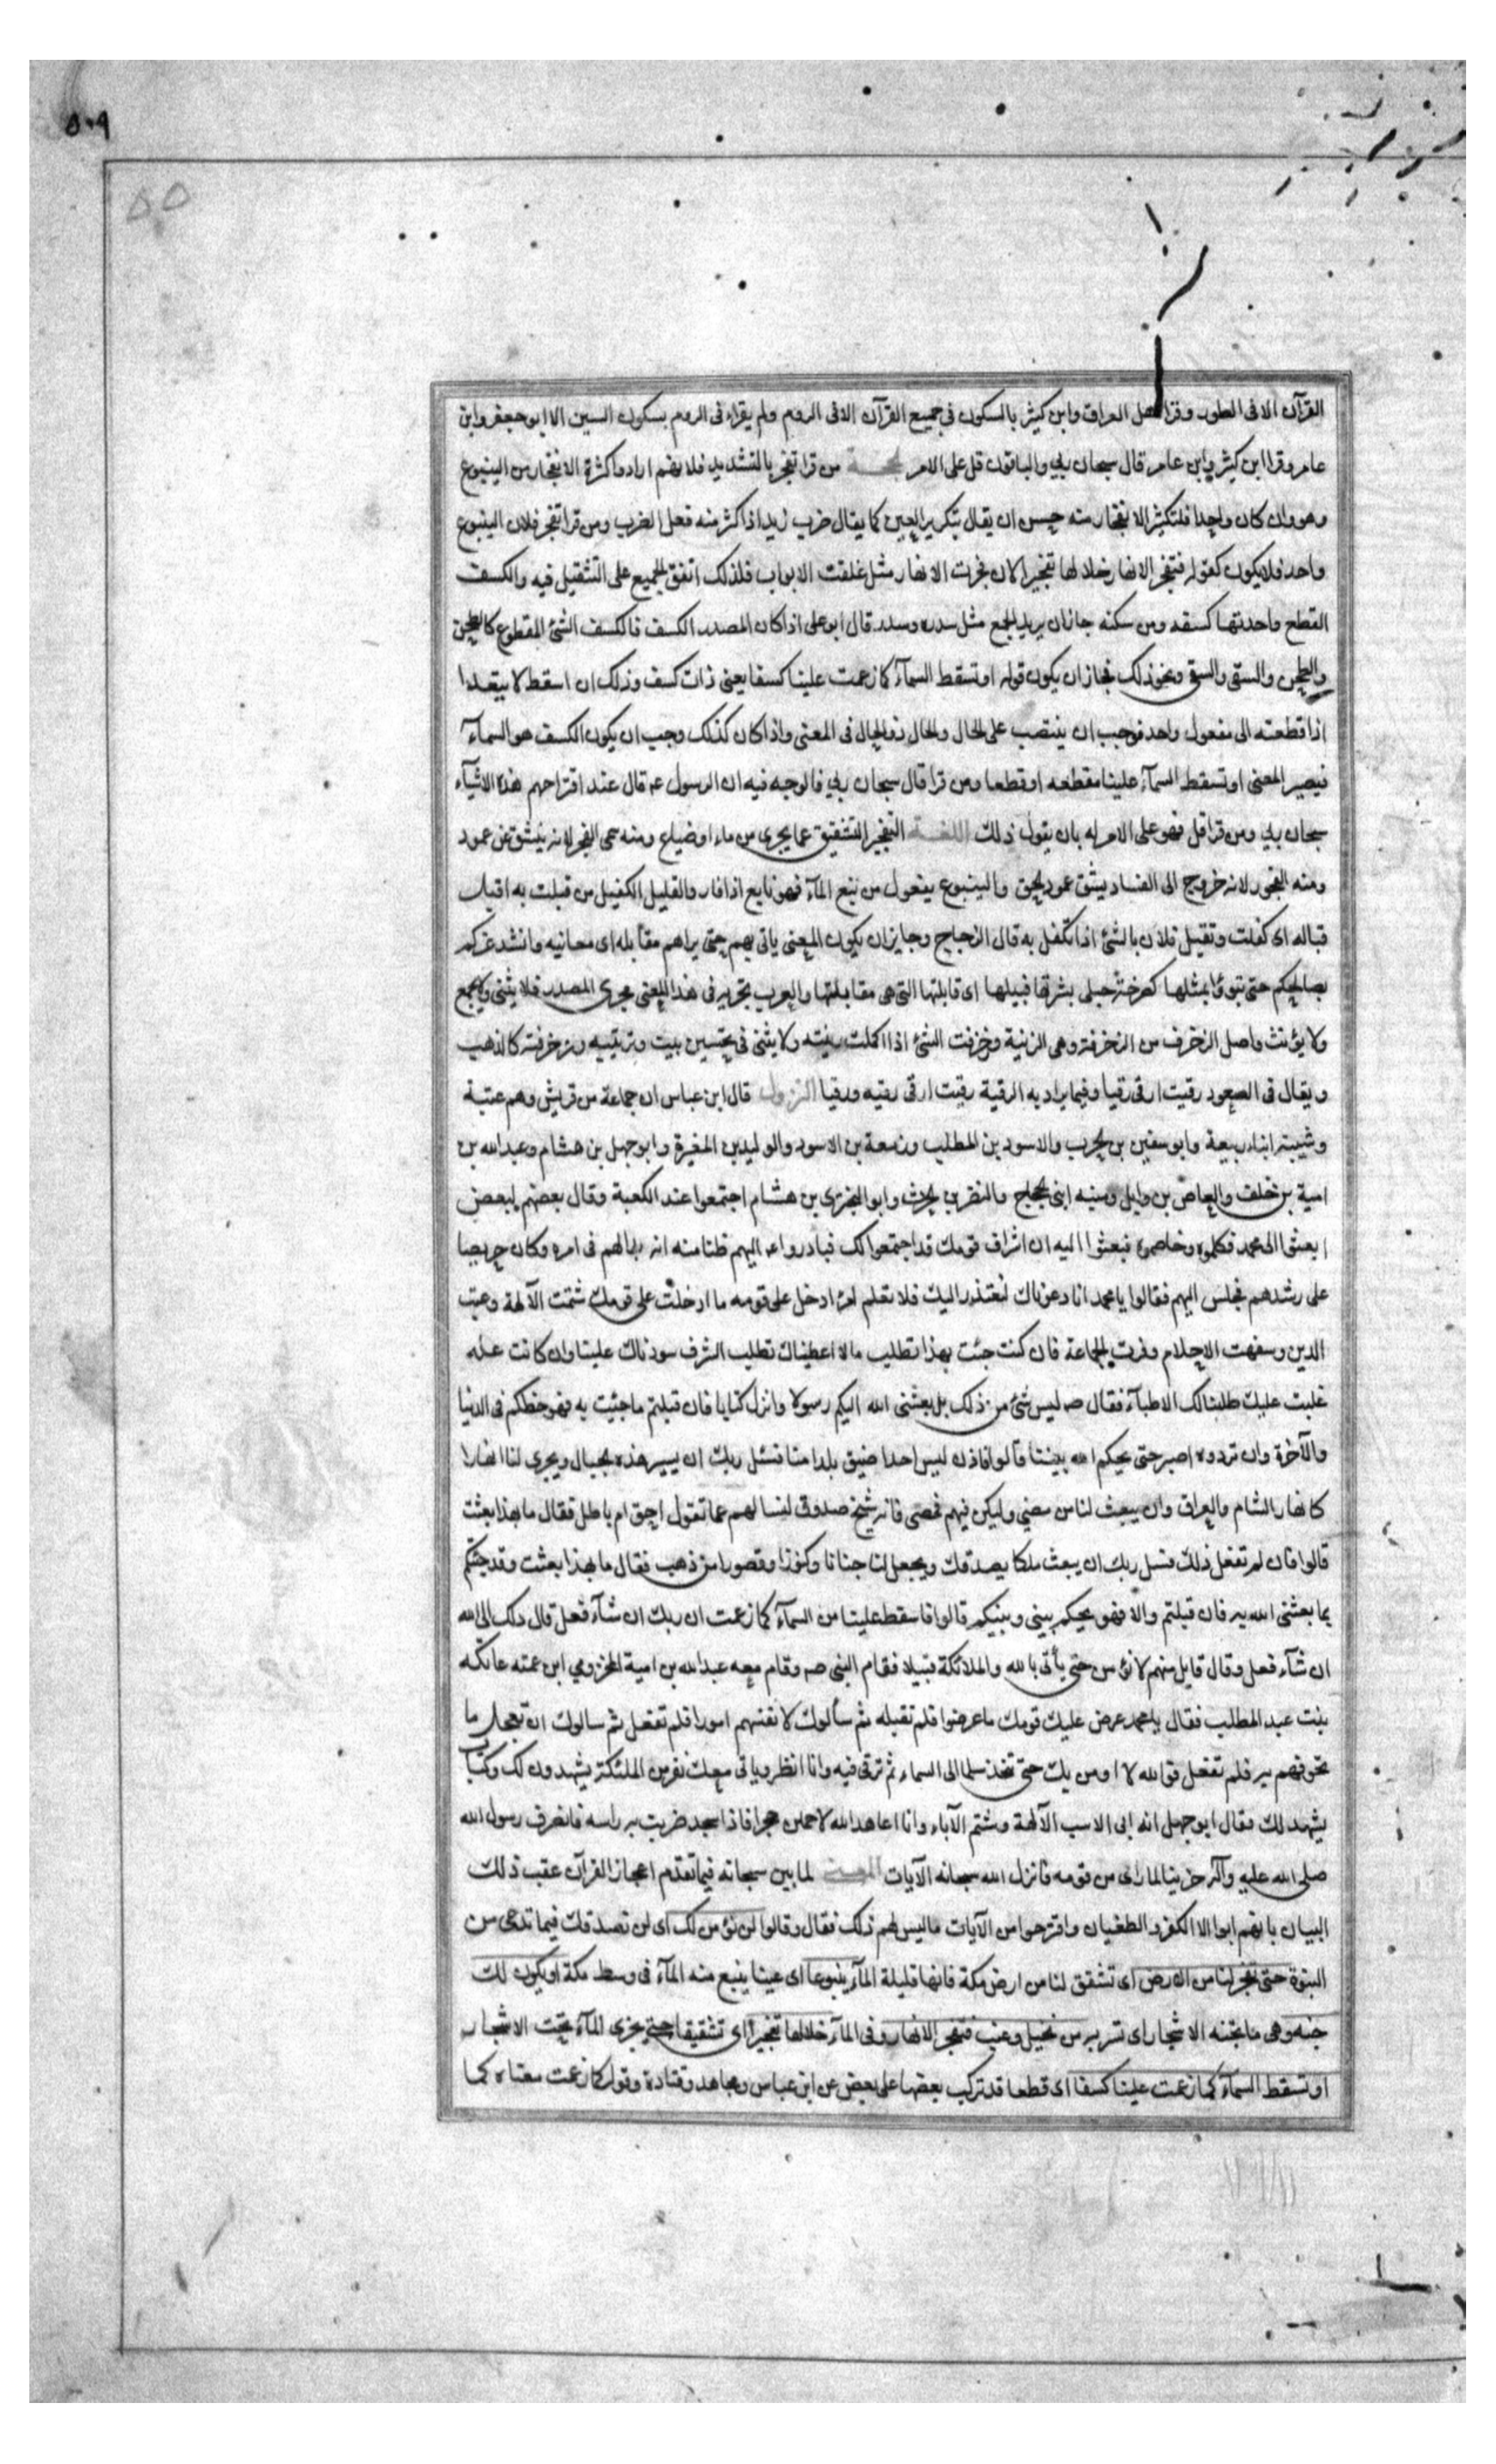 ٥٠٩
٥٥
القرآن الا فى الطور وقرا اهل العراق وابن كثير بالسكون فى جميع القرآن الا فى الروم ولم يقراء فى الروم بسكون السين الا ابو جعفر وابن
عامر وقرا ابن كثير وابن عامر قال سبحان ربي والباقون قل على الامر الحجـــة من قرا تفجر بالتشديد فلانهم ارادوا كثرة الانفجار من الينبوع
وهو وان كان واحدا فلتكثير الانفجار منه حسن ان يقال بتكرير العين كما يقال ضرب زيد اذا كثر منه فعل الضرب ومن قرا تفجر فلان الينبوع
واحد فلا يكون كقوله فتفجر الانهار خلالها تفجيرا لان فجرت الانهار مثل غلقت الابواب فلذلك اتفق الجميع على التثقيل فيه والكسف
القطع واحدتها كسفه ومن سكنه جاز ان يريد الجمع مثل سدره وسدر قال ابو على اذا كان المصدر الكسف فالكسف الشئ المقطوع كالطحن
والطحن والسقى والسقى ونحو ذلك فجاز ان يكون قوله او تسقط السمآء كما زعمت علينا كسفا يعنى ذات كسف وذلك ان اسقط لا يتعدا
اذا قطعته الى مفعول واحد فوجب ان ينتصب على الحال والحال ذو الحال فى المعنى واذا كان كذلك وجب ان يكون الكسف هو السمآء
فيصير المعنى او تسقط السمآء علينا مقطعه او قطعا ومن قرا قال سبحان ربي فالوجه فيه ان الرسول عم قال عند اقتراحهم هذه الاشيآء
سبحان ربي ومن قرا قل فهو على الامر له بان يقول ذلك اللغـــة التفجير التشقيق عما يجرى من ماء او ضياء ومنه سمى الفجر لانه ينشق عن عمود
ومنه الفجور لانه خروج الى الفساد بشق عمود الحق والينبوع يفعول من نبع المآء فهو نابع اذا فار والقبيل الكفيل من قبلت به اقبل
قباله اى كفلت وتقبل فلان بالشئ اذا تكفل به قال الزجاج وجايز ان يكون المعنى ياتى بهم حتى يراهم مقابله اى معانيه وانشد غيركم
بصالحكم حتى تبوؤا بمثلها كصرخة حبلى بشرتها قبيلها اى قابلتها التى هى مقابلتها والعرب تجريه فى هذا المعنى مجرى المصدر فلا يثنى ولا يجمع
ولا يؤنث واصل الزخرف من الزخرفة وهى الزنية وخرفت الشئ اذا اكملت زينته ولا يثنى فى تحسين بيت وتزيينه وزخرفته كالذهب
ويقال فى الصعود رقيت ارقى رقيا وفيما يراد به الرقية رقيت ارقى رقيه ورقيا النزول قال ابن عباس ان جماعة من قريش وهم عتبة
وشيبة ابناء ربيعة وابو سفين بن حرب والاسود بن المطلب وزمعة بن الاسود والوليد بن المغيرة وابو جهل بن هشام وعبد الله بن
امية بن خلف والعاص بن وايل ومنيه ابنى الحجاج والنضر بن الحرث وابو البخترى بن هشام اجتمعوا عند الكعبة وقال بعضهم لبعض
ابعثوا الى محمد فكلموه وخاصموه فبعثوا اليه ان اشراف قومك قد اجتمعوا لك فبادر واعم اليهم ظنا منه انه بدا لهم فى امره وكان حريصا
على رشدهم فجلس اليهم فقالوا يا محمد انا دعوناك لنعتذر اليك فلا نعلم احدا ادخل على قومه ما ادخلت على قومك شتمت الآلهة وعبت
الدين وسفهت الاحلام وفرقت الجماعة فان كنت جئت بهذا تطلب مالا اعطيناك تطلب الشرف سودناك علينا وان كانت عله
غلبت عليك طلبنا لك الاطبآء فقال صم ليس شئ من ذلك بل بعثنى الله اليكم رسولا وانزل كتابا فان قبلتم ما جئت به فهو حظكم فى الدنيا
والآخرة وان تردوه اصبر حتى يحكم الله بيننا قالوا فاذن ليس احدا ضيق بلدا منا فسئل ربك ان يسير هذه الجبال ويجرى لنا انهارا
كانهار الشام والعراق وان يبعث لنا من مضي وليكن فيهم قصى فانه شيخ صدوق لنسالهم عما تقول احق ام باطل فقال ما بهذا بعثت
قالوا فان لم تفعل ذلك فسل ربك ان يبعث ملكا يصدقك ويجعل لنا جنانا وكنوزا وقصورا من ذهب فقال ما بهذا بعثت وقد جئتكم
بما بعثنى الله به فان قبلتم والا فهو يحكم بينى وبينكم قالوا فاسقط علينا من السمآء كما زعمت ان ربك ان شآء فعل قال ذلك الى الله
ان شآء فعل وقال قايل منهم لا نؤمن حتى يأتى بالله والملائكة قبيلا فقام النبى صم وقام معه عبد الله بن امية المخزومي ابن عمته عاتكه
بنت عبد المطلب فقال يا محمد عرض عليك قومك ما عرضوا فلم تقبله ثم سألوك لانفسهم امورا فلم تفعل ثم سالوك ان تعجل ما
تخوفهم به فلم تفعل فوالله لا اومن بك حتى تتخذ سلما الى السماء ثم ترقى فيه وانا انظر وياتى معك نفر من الملئكة يشهدون لك وكتاب
يشهد لك وقال ابو جهل انه ابى الا سب الآلهة وشتم الآباء وانا اعاهد الله لاحملن حجرا فاذا سجد ضربت به راسه فانصرف رسول الله
صلى الله عليه وآله حزينا لما راى من قومه فانزل الله سبحانه الآيات المعنـــى لما بين سبحانه فيما تقدم اعجاز القرآن عقب ذلك
البيان بانهم ابوا الا الكفر والطغيان واقترحوا من الآيات ما ليس لهم ذلك فقال وقالوا لن نؤمن لك اى لن نصدقك فيما تدعى من
النبوة حتى تفجر لنا من الارض اى تشقق لنا من ارض مكة فانها قليلة المآء ينبوعا اى عينا ينبع منه المآء فى وسط مكة او يكون لك
جنه وهى ما تجنه الاشجار اى تستره من نخيل وعنب فتفجر الانهار وفى المآء خلالها تفجيرا اى تشقيقا حتى يجرى المآء تحت الاشجار
او تسقط السمآء كما زعمت علينا كسفا اى قطعا قد تركب بعضها على بعض عن ابن عباس ومجاهد وقتادة وقوله كما زعمت معناه كما